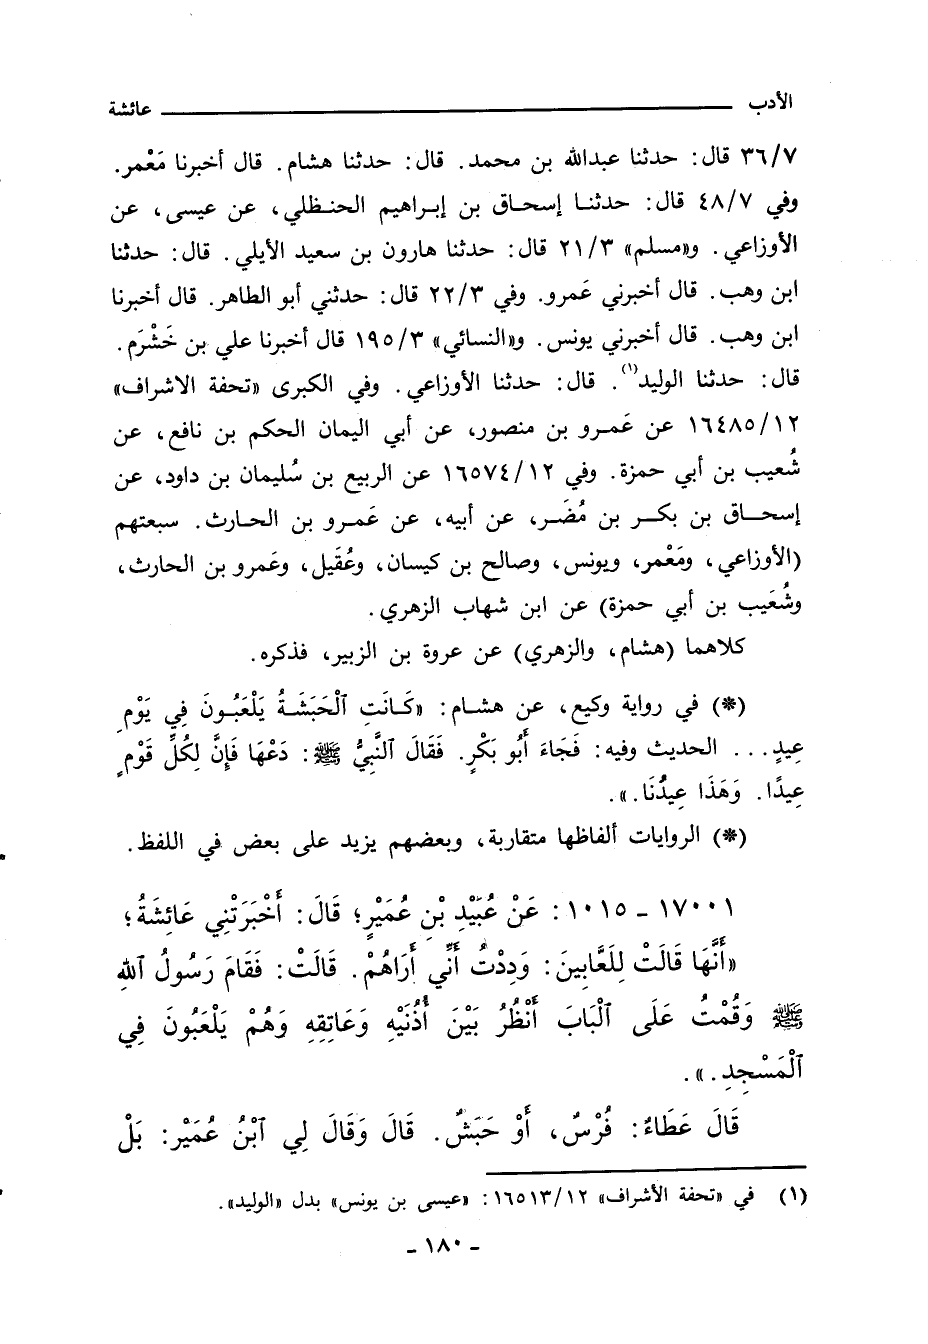 الأدب ـــــــــــــــــــــــــــــــــ عائشة
٣٦/٧ قال: حدثنا عبدالله بن محمد. قال: حدثنا هشام. قال أخبرنا مَعْمر.
وفي ٤٨/٧ قال: حدثنا إسحاق بن إبراهيم الحنظلي، عن عيسى، عن
الأوزاعي. و«مسلم» ٢١/٣ قال: حدثنا هارون بن سعيد الأيلي. قال: حدثنا
ابن وهب. قال أخبرني عَمرو. وفي ٢٢/٣ قال: حدثني أبو الطاهر. قال أخبرنا
ابن وهب. قال أخبرني يونس. و«النسائي» ١٩٥/٣ قال أخبرنا علي بن خَشْرَم.
قال: حدثنا الوليد(١). قال: حدثنا الأوزاعي. وفي الكبرى «تحفة الاشراف»
١٦٤٨٥/١٢ عن عَمرو بن منصور، عن أبي اليمان الحكم بن نافع، عن
شُعيب بن أبي حمزة. وفي ١٦٥٧٤/١٢ عن الربيع بن سُليمان بن داود، عن
إسحاق بن بكر بن مُضَر، عن أبيه، عن عَمرو بن الحارث. سبعتهم
(الأوزاعي، ومَعْمر، ويونس، وصالح بن كيسان، وعُقَيل، وعَمرو بن الحارث،
وشُعَيب بن أبي حمزة) عن ابن شهاب الزهري.
كلاهما (هشام، والزهري) عن عروة بن الزبير، فذكره.
(*) في رواية وكيع، عن هشام: «كَانَتِ ٱلْحَبَشَةُ يَلْعَبُونَ فِي يَوْمِ
عِيدٍ... الحديث وفيه: فَجَاءَ أَبُو بَكْرٍ. فَقَالَ ٱلنَّبِيُّ ﷺ: دَعْهَا فَإِنَّ لِكُلِّ قَوْمٍ
عِيدًا. وَهَذَا عِيدُنَا.».
(*) الروايات ألفاظها متقاربة، وبعضهم يزيد على بعض في اللفظ.
١٧٠٠١ - ١٠١٥: عَنْ عُبَيْدِ بْنِ عُمَيْرٍ؛ قَالَ: أَخْبَرَتْنِي عَائِشَةُ؛
«أَنَّهَا قَالَتْ لِلَعَّابِينَ: وَدِدْتُ أَنِّي أَرَاهُمْ. قَالَتْ: فَقَامَ رَسُولُ ٱللهِ
ﷺ وَقُمْتُ عَلَى ٱلْبَابَ أَنْظُرُ بَيْنَ أُذُنَيْهِ وَعَاتِقِهِ وَهُمْ يَلْعَبُونَ فِي
ٱلْمَسْجِدِ.».
قَالَ عَطَاءٌ: فُرْسٌ، أَوْ حَبَشٌ. قَالَ وَقَالَ لِي ٱبْنُ عُمَيْر: بَلْ
(١) في «تحفة الأشراف» ١٦٥١٣/١٢: «عيسى بن يونس» بدل «الوليد».
- ١٨٠ -